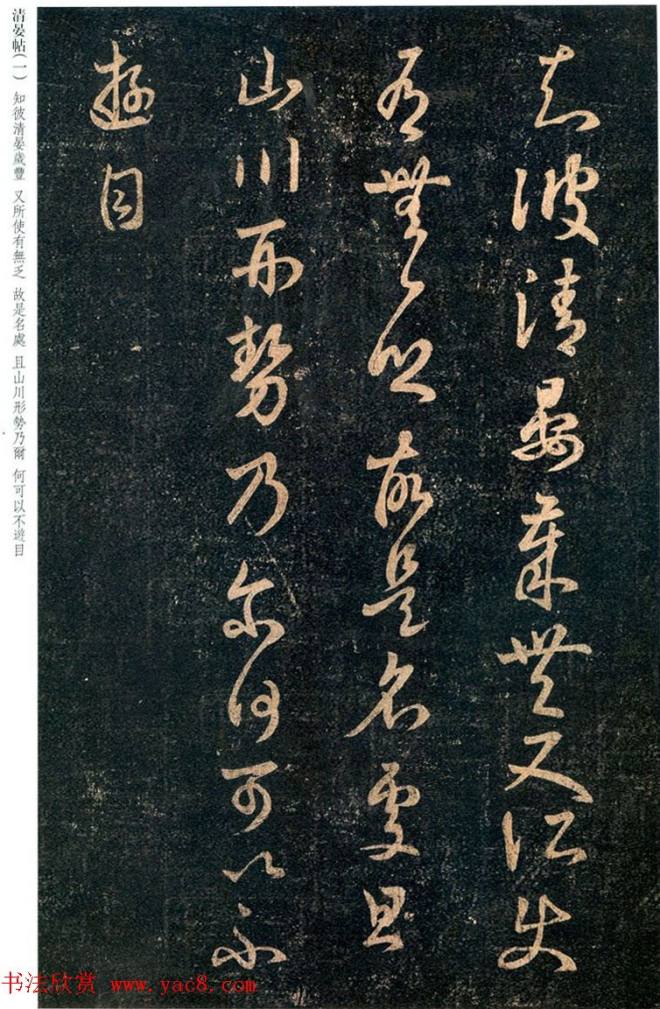 知彼清晏歲豐又所使
有無乏故是名處且
山川形勢乃爾何可以不
遊目
清晏帖(一) 知彼清晏歲豐 又所使有無乏 故是名處 且山川形勢乃爾 何可以不遊目
书法欣赏 www.yac8.com